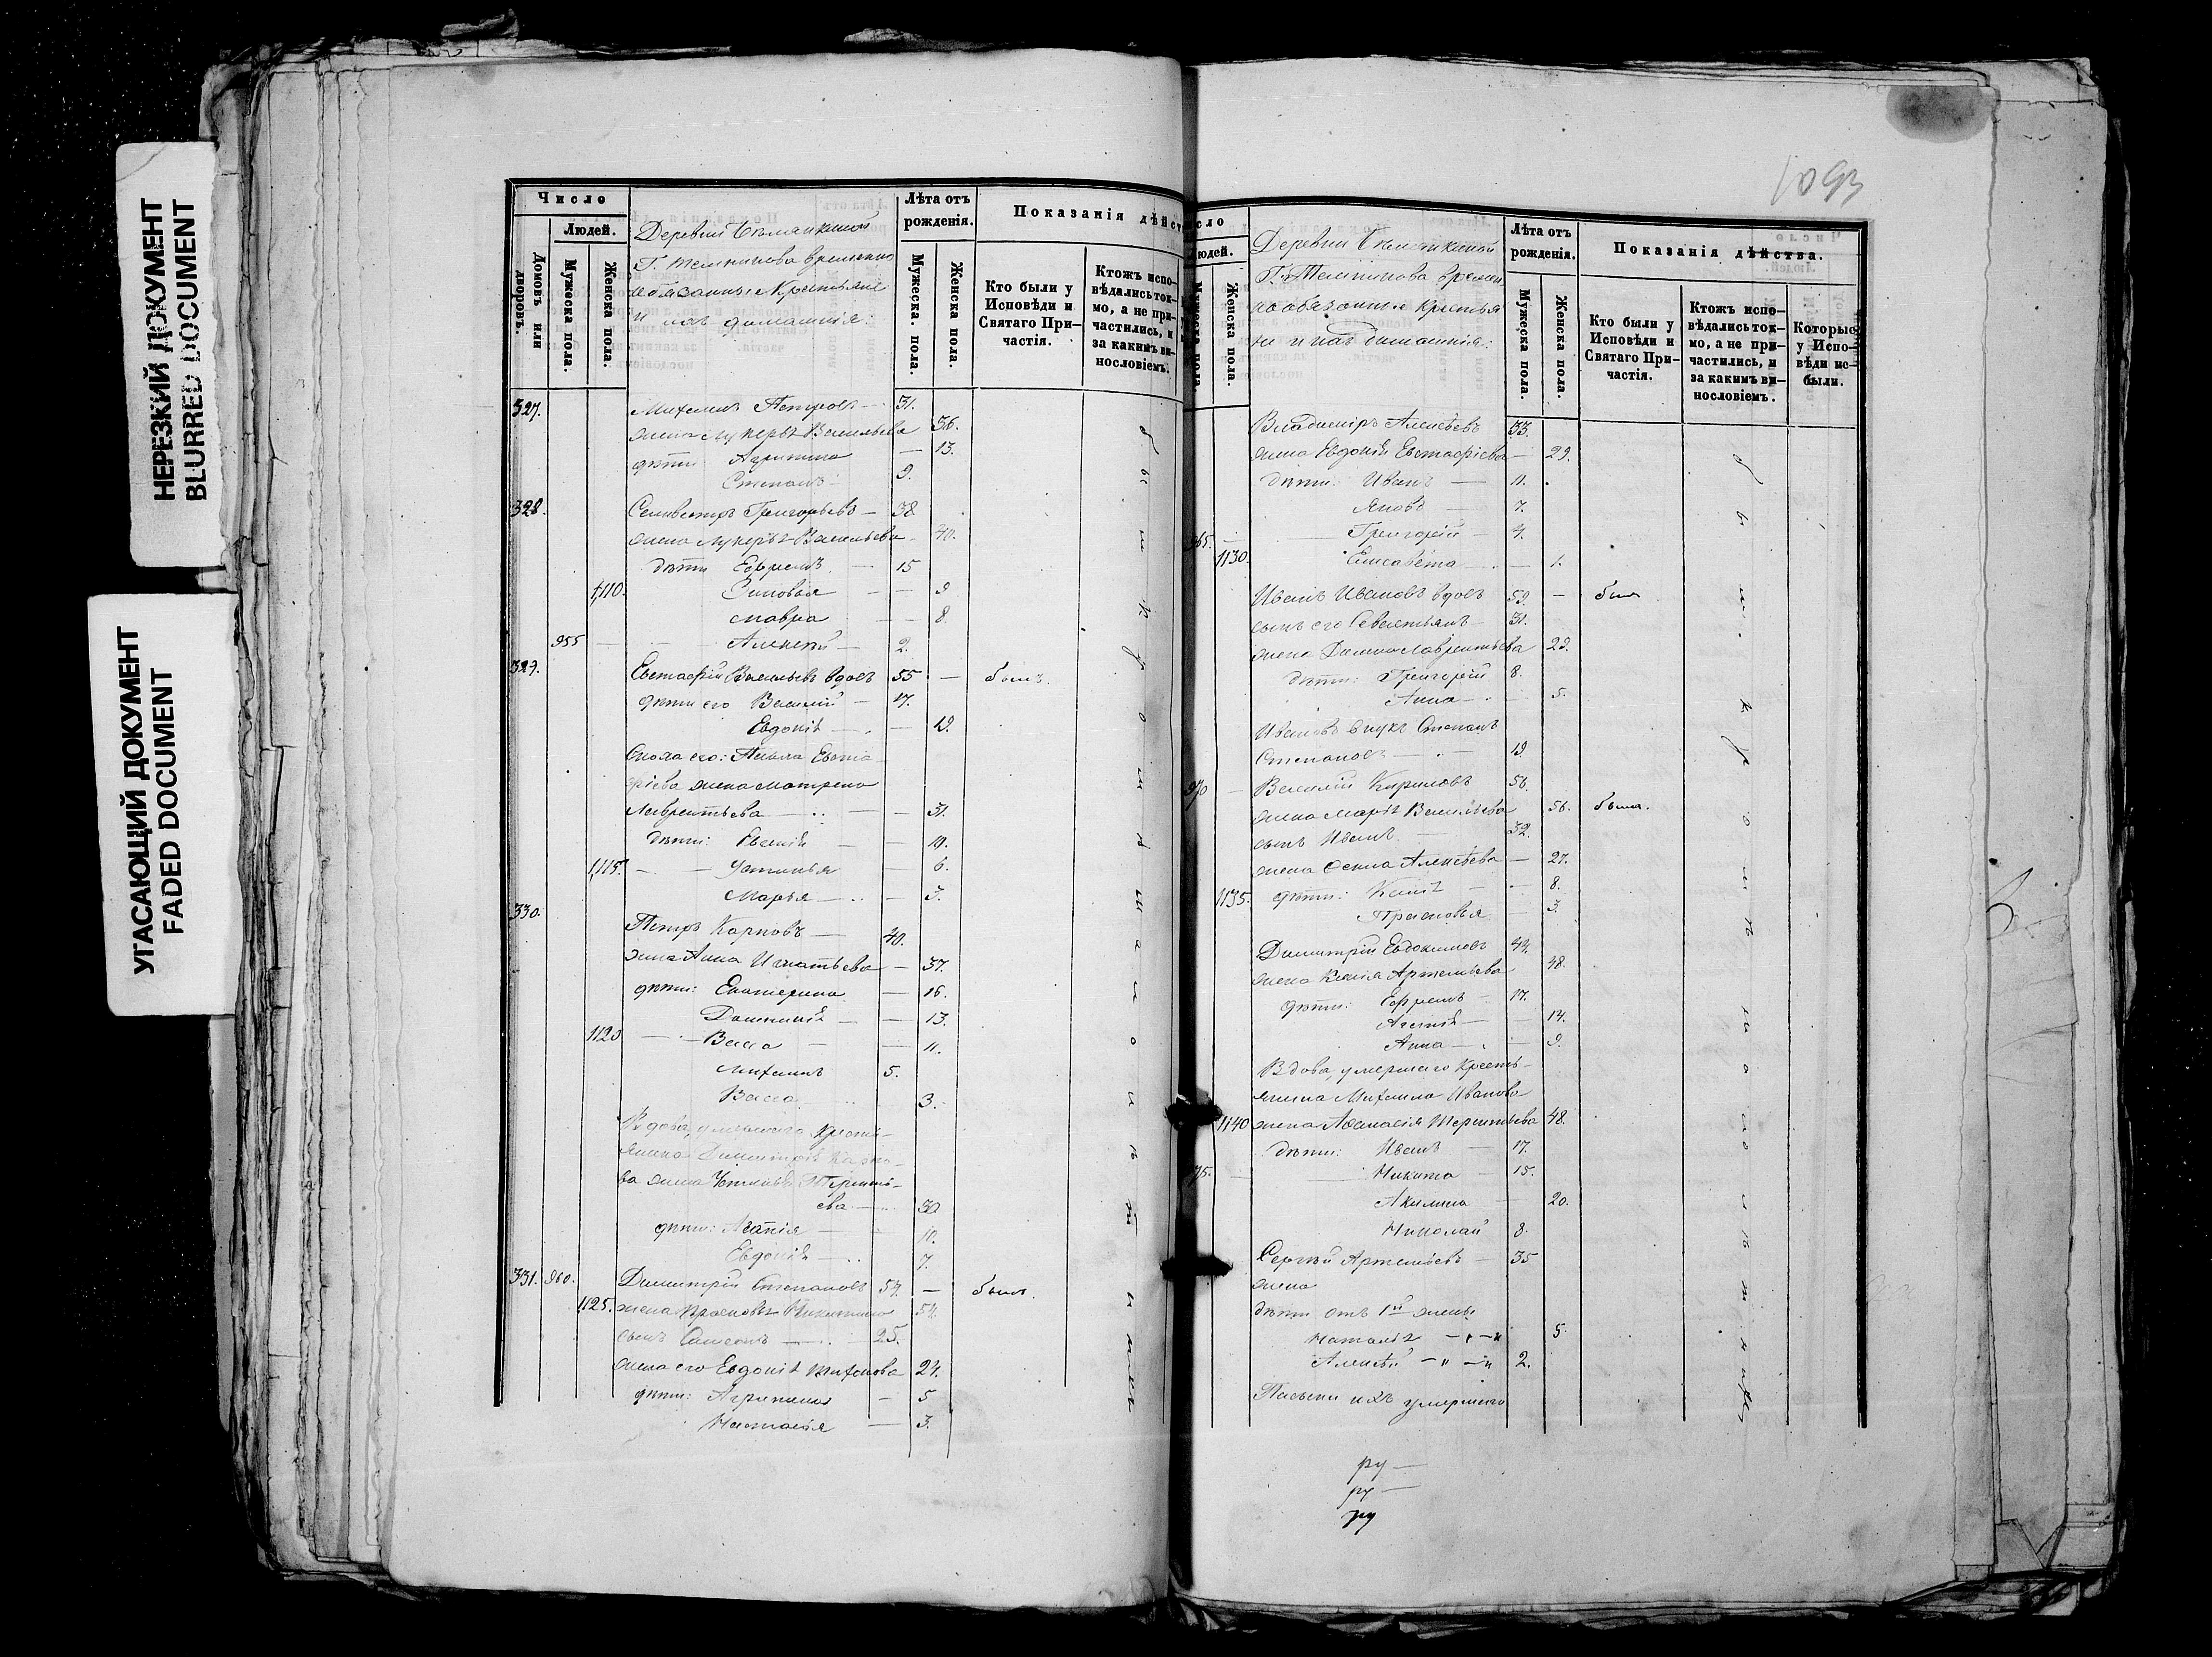 НЕРЕЗКИЙ ДОКУМЕНТ
BLURRED DOCUMENT
УГАСАЮЩИЙ ДОКУМЕНТ
FADED DOCUMENT
Число
Людей.
Домовъ или дворовъ.
Мужеска пола.
Женска пола.
Деревни
Г. Темникова временно
обязанные Крестьяне
и ихъ домашнія:
Лѣта отъ рожденія.
Мужеска. пола.
Женска пола.
Показанія дѣйст
Кто были у Исповѣди и Святаго При-
частія.
Ктожъ испо-
вѣдались ток-
мо, а не при-
частились, и
за какимъ ви-
нословіемъ.
327. Михаилъ Петровъ — 31.
жена Лукерья Васильева 36.
дѣти Агрипина — 13.
Степанъ 9.
328. Селивестръ Григорьевъ — 38
жена Лукерья Васильева 40.
дѣти Ефремъ — 15
1,110. Зиновья — 9
Мавра — 8.
955 — Алексей — 2.
329. Евстафій Васильевъ вдовъ 55 — былъ.
дѣти его Василій — 17.
Евдокія — 19.
Сноха его: Павла Евста
фіева жена Матрена
Лаврентьева — 31.
дѣти: Евгенія —
1,115. — Устинья — 6.
Марья — 3.
330. Петръ Карповъ — 40.
жена Анна Игнатьева — 37.
дѣти: Екатерина — 16.
Домникія — 13.
1120 — Васса — 11.
Михаилъ 5.
Васса 3.
Вдова, умершаго крестья-
нина Димитрія Карпо-
ва жена Устинья Терентье-
ева — 30
дѣти: Агапія — 10.
Евдокія — 7.
331. 960. Димитрій Степановъ 54. — былъ.
1125. жена Прасковья Никитина 54.
сынъ Самсонъ — 25.
жена его Евдокія Тихонова 24.
дѣти: Агрипина — 5
Настасія — 3.
1093
сло
юдей.
Мужеска пола.
Женска пола.
Деревни
Г. Темникова времен
нообязанные Крестья
не и ихъ домашнія:
Лѣта отъ рожденія.
Мужеска пола.
Женска пола.
Показанія дѣйства.
Кто были у Исповѣди и Святаго При-
частія.
Ктожъ испо-
вѣдались ток-
мо, а не при-
частились, и
за какимъ ви-
нословіемъ.
Которые
у Испо-
вѣди не-
были.
Владиміръ Алексѣевъ 33.
жена Евдокія Евстафіева — 29.
дѣти: Иванъ — 11.
Яковъ — 7.
965. — Григорій — 4.
1130. Елисавета — 1.
Иванъ Ивановъ вдовъ 59. — былъ
сынъ его Севастьянъ — 31.
жена Домна Лаврентьева 29.
дѣти: Григорій 8.
Анна — 5.
Ивановъ внукъ Степанъ
Степановъ — 19
970 — Василій Кириловъ 56.
жена Марья Васильева 56. была.
сынъ Иванъ — 32.
жена Фекла Алексѣева — 27.
1135. дѣти: Ксенія — 8.
Прасковья — 3.
Димитрій Евдокимовъ 44.
жена Ксенія Артемьева 48.
дѣти: Ефремъ — 17.
Агапія — 14.
Анна — 9.
Вдова, умершаго Кресть-
янина Михаила Иванова
1140 жена Афанасія Терентьева 48.
дѣти: Иванъ — 17.
975. — Никита — 15.
Акилина — 20.
Николай 8.
Сергѣй Артемьевъ — 35
жена
дѣти отъ 1й жены
Наталія — 5.
Алексѣй — 2.
Пасынки ихъ умершаго
ру —
ру —
ру